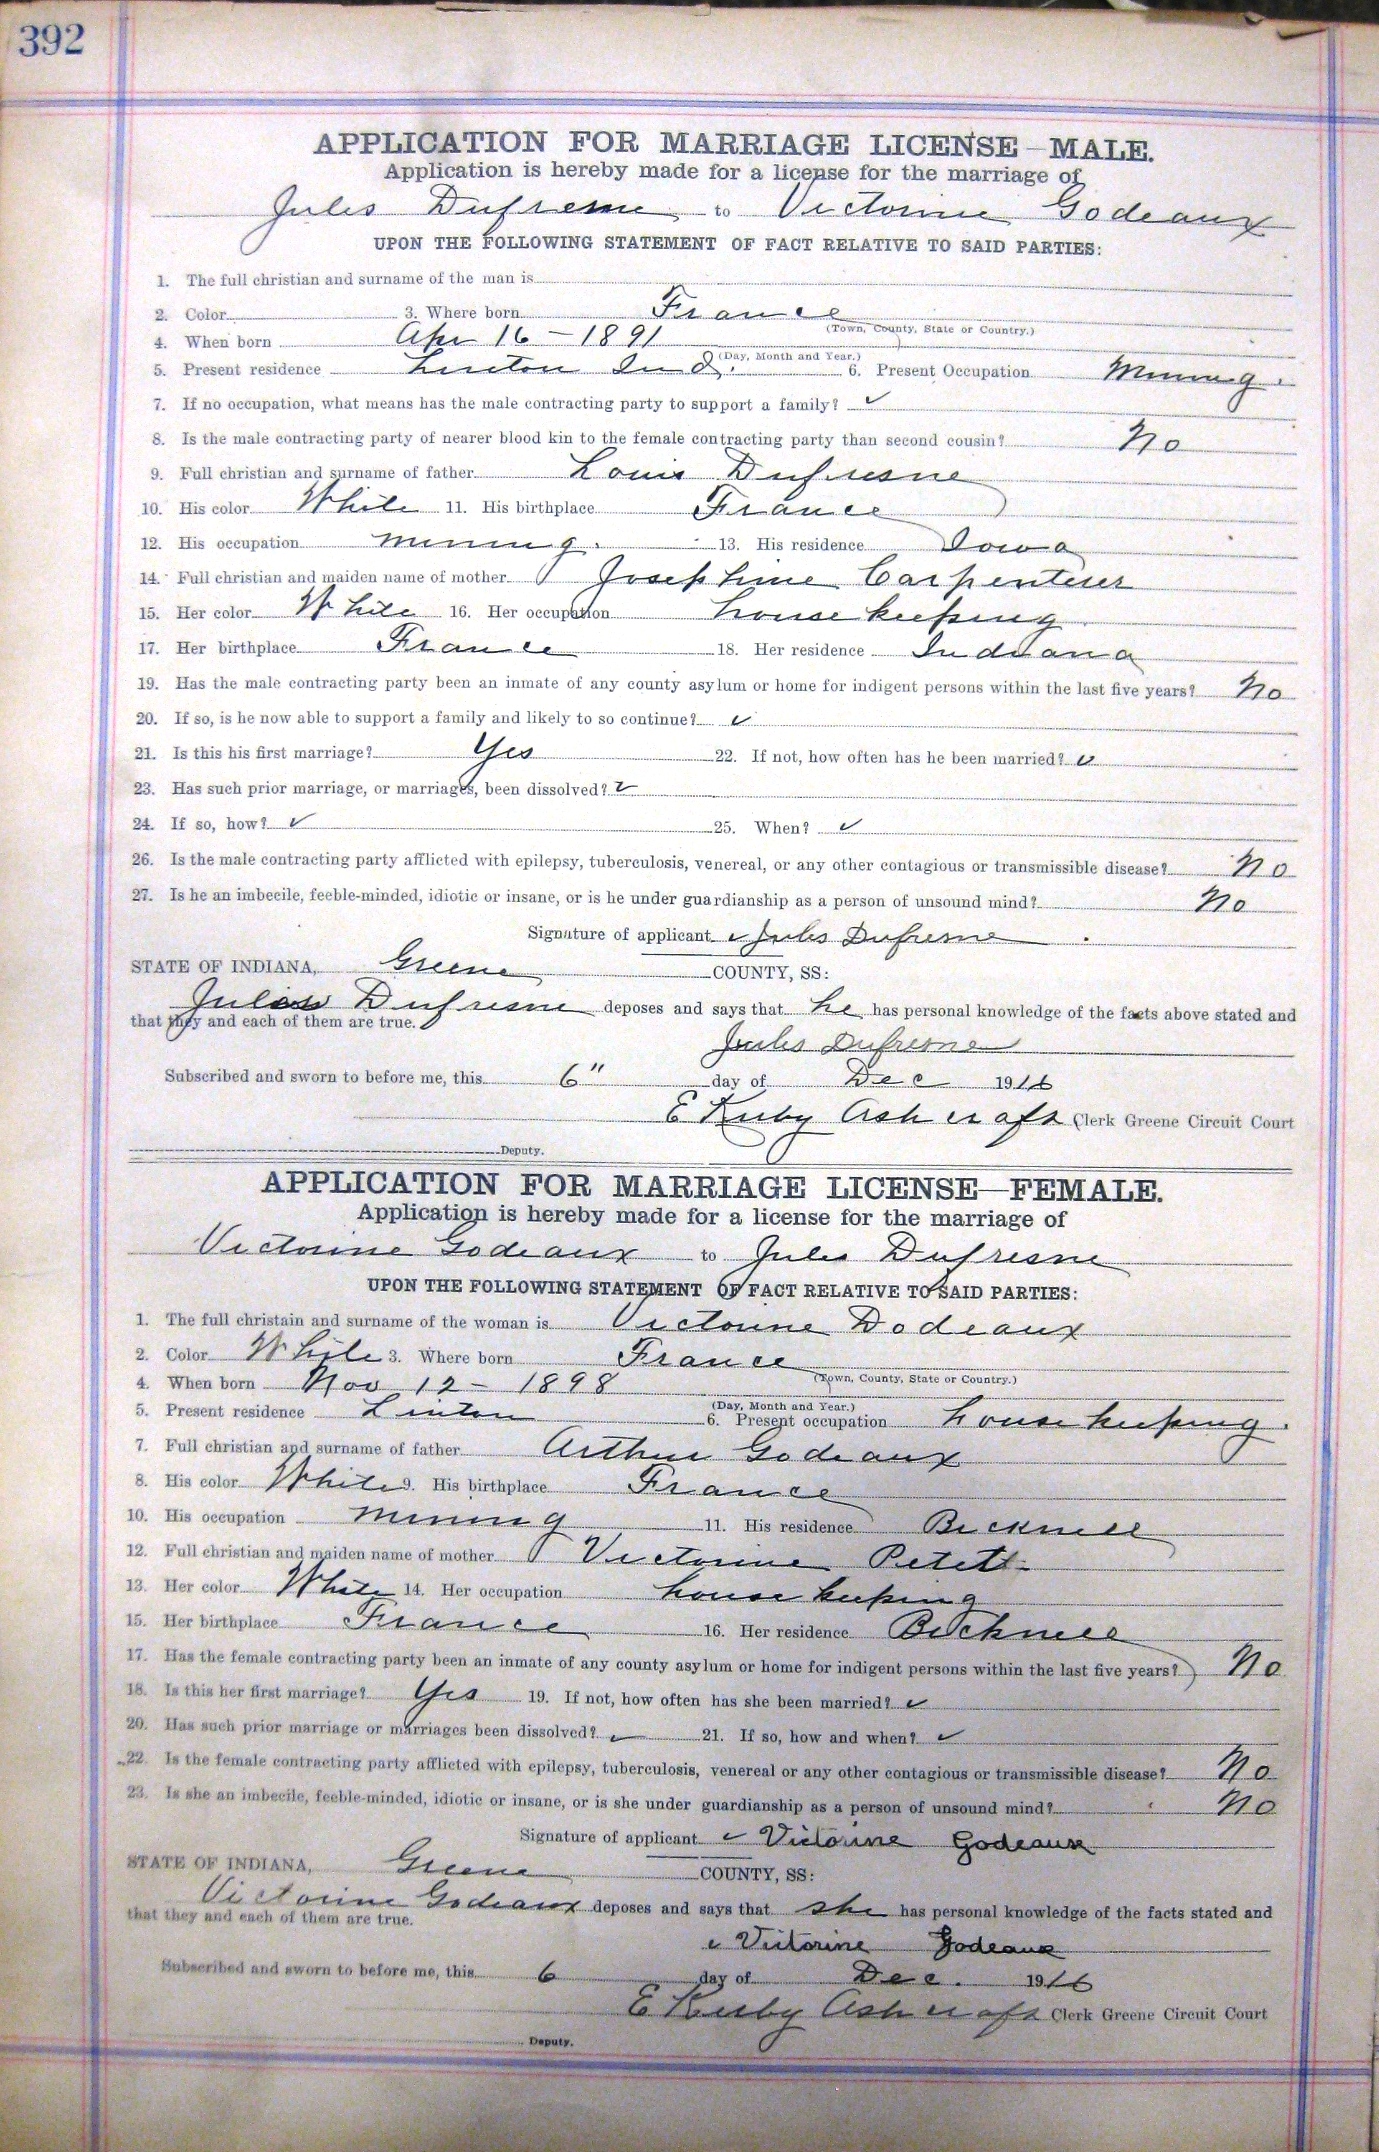 392
APPLICATION FOR MARRIAGE LICENSE—MALE.
Application is hereby made for a license for the marriage of
Jules Dufresne to Victorine Godeaux
UPON THE FOLLOWING STATEMENT OF FACT RELATIVE TO SAID PARTIES:
1. The full christian and surname of the man is
2. Color 3. Where born France
(Town, County, State or Country.)
4. When born Apr 16 - 1891
(Day, Month and Year.)
5. Present residence Linton Ind. 6. Present Occupation Mining.
7. If no occupation, what means has the male contracting party to support a family? ✓
8. Is the male contracting party of nearer blood kin to the female contracting party than second cousin? No
9. Full christian and surname of father Louis Dufresne
10. His color White 11. His birthplace France
12. His occupation Mining. 13. His residence Iowa
14. Full christian and maiden name of mother Josephine
15. Her color White 16. Her occupation housekeeping
17. Her birthplace France 18. Her residence Indiana
19. Has the male contracting party been an inmate of any county asylum or home for indigent persons within the last five years? No
20. If so, is he now able to support a family and likely to so continue? ✓
21. Is this his first marriage? Yes 22. If not, how often has he been married? ✓
23. Has such prior marriage, or marriages, been dissolved? ✓
24. If so, how? ✓ 25. When? ✓
26. Is the male contracting party afflicted with epilepsy, tuberculosis, venereal, or any other contagious or transmissible disease? No
27. Is he an imbecile, feeble-minded, idiotic or insane, or is he under guardianship as a person of unsound mind? No
Signature of applicant ✓ Jules Dufresne
STATE OF INDIANA, Greene COUNTY, SS:
Jules Dufresne deposes and says that he has personal knowledge of the facts above stated and
that they and each of them are true.
Jules Dufresne
Subscribed and sworn to before me, this 6" day of Dec 1916
E Kirby Ashcraft Clerk Greene Circuit Court
Deputy.
APPLICATION FOR MARRIAGE LICENSE—FEMALE.
Application is hereby made for a license for the marriage of
Victorine Godeaux to Jules Dufresne
UPON THE FOLLOWING STATEMENT OF FACT RELATIVE TO SAID PARTIES:
1. The full christain and surname of the woman is Victorine Dodeaux
2. Color White 3. Where born France
(Town, County, State or Country.)
4. When born Nov 12 - 1898
(Day, Month and Year.)
5. Present residence Linton 6. Present occupation housekeeping.
7. Full christian and surname of father Arthur Godeaux
8. His color White 9. His birthplace France
10. His occupation Mining 11. His residence Bicknell
12. Full christian and maiden name of mother Victorine Petett
13. Her color White 14. Her occupation housekeeping
15. Her birthplace France 16. Her residence Bicknell
17. Has the female contracting party been an inmate of any county asylum or home for indigent persons within the last five years? No
18. Is this her first marriage? Yes 19. If not, how often has she been married? ✓
20. Has such prior marriage or marriages been dissolved? ✓ 21. If so, how and when? ✓
22. Is the female contracting party afflicted with epilepsy, tuberculosis, venereal or any other contagious or transmissible disease? No
23. Is she an imbecile, feeble-minded, idiotic or insane, or is she under guardianship as a person of unsound mind? No
Signature of applicant ✓ Victorine Godeaux
STATE OF INDIANA, Greene COUNTY, SS:
Victorine Godeaux deposes and says that she has personal knowledge of the facts stated and
that they and each of them are true.
✓ Victorine Godeaux
Subscribed and sworn to before me, this 6 day of Dec. 1916
E Kirby Ashcraft Clerk Greene Circuit Court
Deputy.